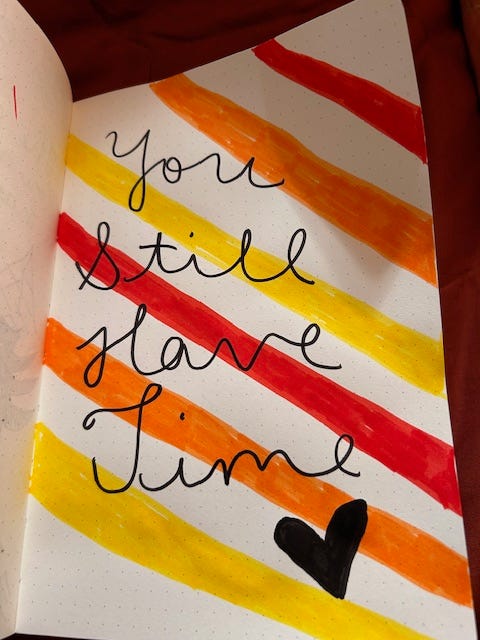 You
Still
Have
Time